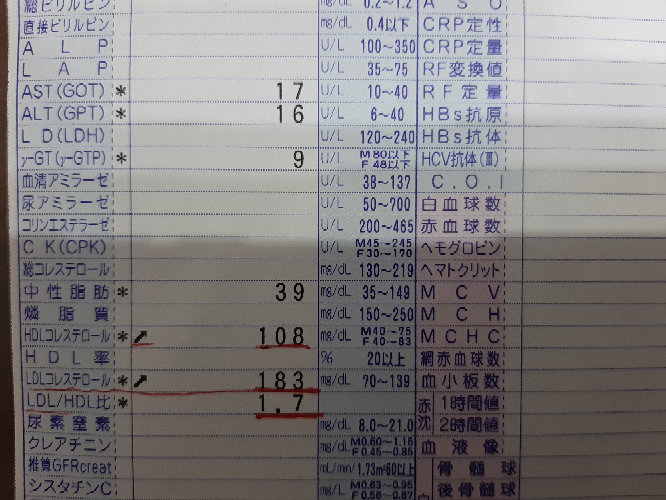 総ビリルビン mg/dL 0.2～1.2 A S O
直接ビリルビン mg/dL 0.4以下 CRP定性
A L P U/L 100～350 CRP定量
L A P U/L 35～75 RF変換値
AST(GOT) * 17 U/L 10～40 RF定量
ALT(GPT) * 16 U/L 6～40 HBs抗原
L D(LDH) U/L 120～240 HBs抗体
γ-GT(γ-GTP) * 9 U/L M80以下 F48以下 HCV抗体(Ⅲ)
血清アミラーゼ U/L 38～137 C.O.I
尿アミラーゼ U/L 50～700 白血球数
コリンエステラーゼ U/L 200～465 赤血球数
C K(CPK) U/L M45～245 F30～170 ヘモグロビン
総コレステロール mg/dL 130～219 ヘマトクリット
中性脂肪 * 39 mg/dL 35～149 M C V
燐脂質 mg/dL 150～250 M C H
HDLコレステロール * ⬈ 108 mg/dL M40～75 F40～83 MCHC
H D L 率 % 20以上 網赤血球数
LDLコレステロール * ⬈ 183 mg/dL 70～139 血小板数
LDL/HDL比 * 1.7 赤沈 1時間値
尿素窒素 mg/dL 8.0～21.0 2時間値
クレアチニン mg/dL M0.60～1.15 F0.45～0.85 血液像
推算GFRcreat mL/min/1.73㎡60以上 骨髄球
シスタチンC mg/L M0.63～0.95 F0.56～0.87 後骨髄球